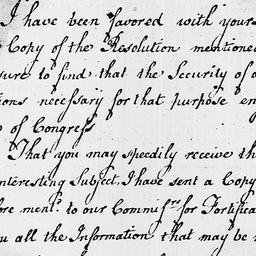 I have been favored with your
Copy of the Resolution mentioned
sure to find that the Security of
ions necessary for that purpose en
of Congress
That you may speedily receive th
nteresting Subject. I have sent a Copy
ore ment.d to our Commiss.rs for Fortifica
u all the Information that may be